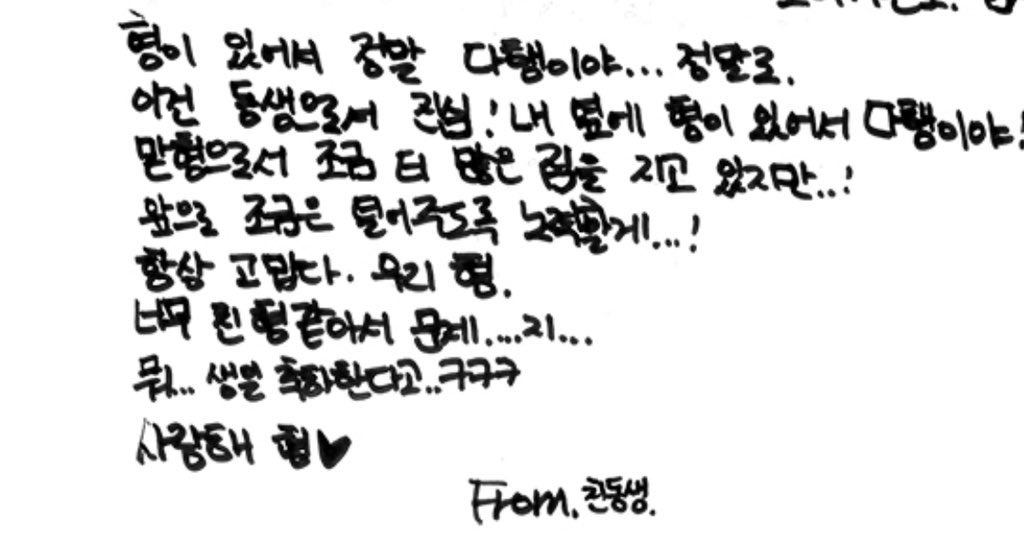 형이 있어서 정말 다행이야... 정말로.
이건 동생으로서 진심! 내 옆에 형이 있어서 다행이야!
맏형으로서 조금 더 많은 짐을 지고 있지만..!
앞으로 조금은 덜어주도록 노력할게...!
항상 고맙다. 우리 형.
너무 찐형같아서 문제....지...
뭐... 생일 축하한다고..ㅋㅋㅋ
사랑해 형♥
From. 친동생.